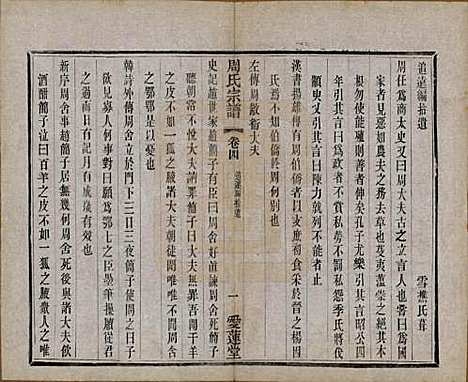 追遠編拾遺
雪樵氏葺
周任爲商太史周大夫古之立言人也左傳引其言二
見者見惡如農夫之務去草也芟夷蘊崇之絕其本
根勿使能殖則善者伸矣孔子尤樂引其言昭公四
年孔子曰周任有言曰爲政者不私勞不罰私怨季氏將伐
顓臾引其言曰陳力就列不能者止
漢書揚雄傳有周伯僑者以支庶初食采於晉之楊因
氏焉不知伯僑周何別也
左傳周歂衞大夫
周氏宗譜
卷四
追遠編拾遺
一
愛蓮堂
史記趙世家趙簡子有臣曰周舍好直諫周舍死簡子
每聽朝常不悅大夫請罪簡子曰大夫無罪吾聞千羊
之皮不如一狐之腋諸大夫朝徒聞唯唯不聞周舍
之鄂鄂是以憂也
韓詩外傳周舍立於門下三日三夜簡子使問之曰子
欲見寡人何事對曰願爲鄂鄂之臣墨筆操牘從君
之過而日有記月有成歲有效也
新序周舍事趙簡子居無幾何周舍死後與諸大夫飲
酒酣簡子泣曰百羊之皮不如一狐之腋衆人之唯